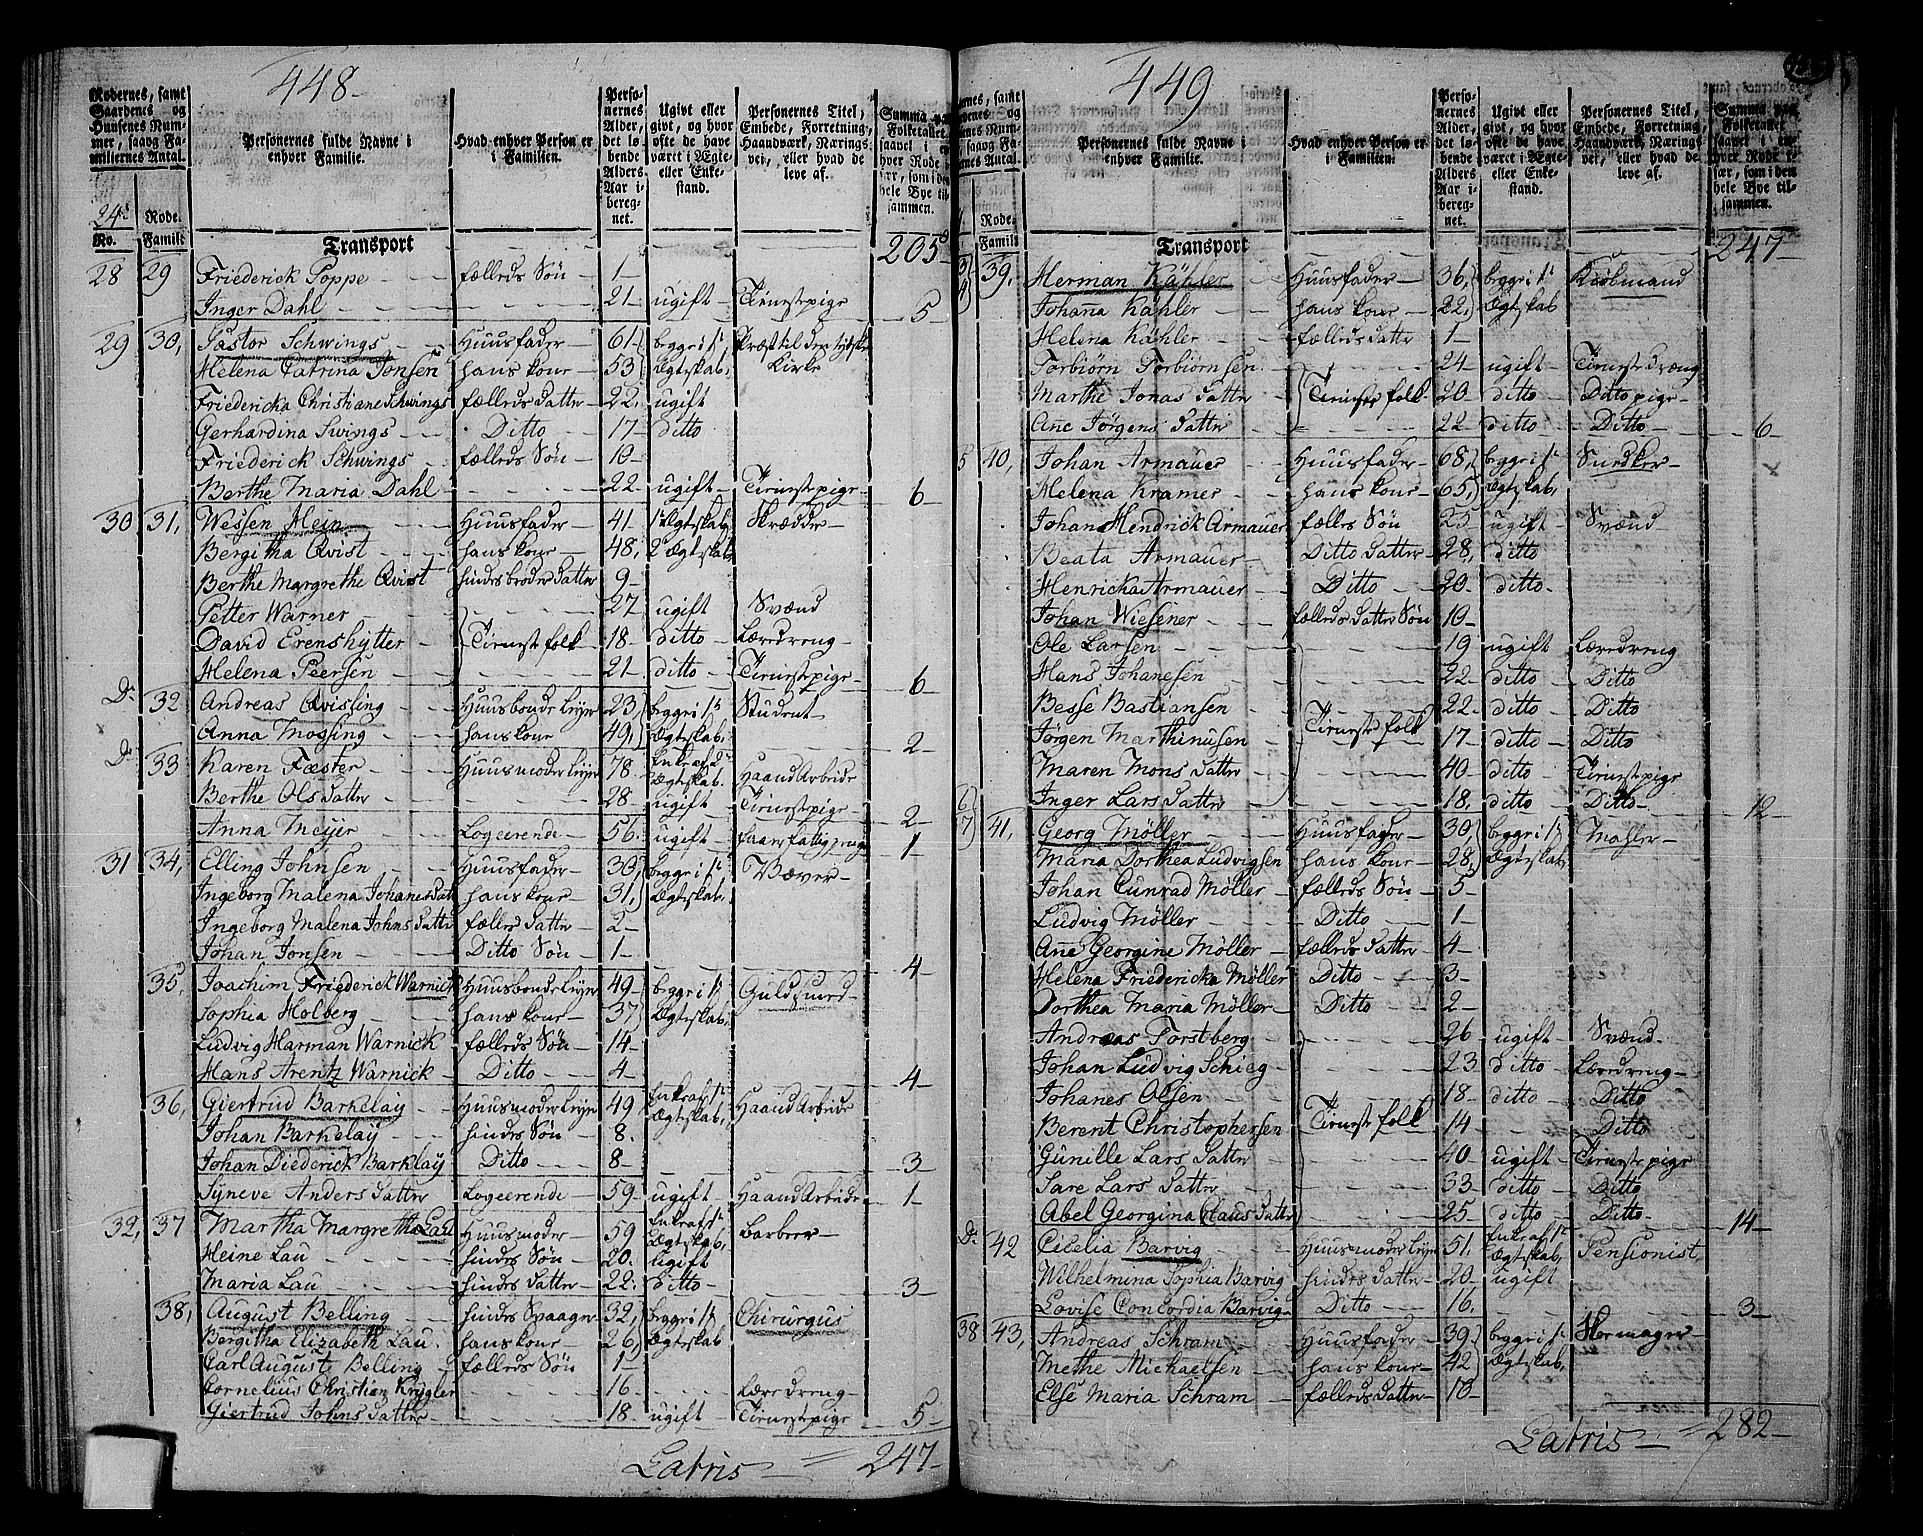 448.
Rodernes, samt Gaardenes og Huusenes Nummer, saavg Familiernes Antal.
Personernes fulde Navne i enhver Familie.
Hvad enhver Person er i Familien.
Personernes Alder, det løbende Alders Aar iberegnet.
Ugivt eller givt, og hvor ofte de have været i Ægte- eller Enkestand.
Personernes Titel, Embede, Forretning, Haandværk, Næringsvei, eller hvad de leve af.
Summa paa Folketallet saavel i enhver Rode især, som i den hele Bye tilsammen.
24de Rode.
No. Famili
Transport 205
28 29 Friederick Poppe fælleds Søn 1
Inger Dahl 21 ugift Tienestepige 5
29 30, Pastor Schwings Huusfader 61 begge i 1ste Præst til den tydske
Helena Catrina Jonsen hans Kone 53 Ægteskab, Kirke
Friedericka Christiane Schwings fælleds Datter 22. ugift
Gerhardina Swings Ditto 17 ditto
Friederick Schwings fælleds Søn 10
Berthe Maria Dahl 22 ugift Tienestepige 6
30 31, Wessen Hein Huusfader 41 1ste Ægteskab Skrædder
Bergitha Qvist hans Kone 48, 2 Ægteskab
Berthe Margrethe Qvist hindes broder Datter 9
Petter Warner 27 ugift Svænd
David Erenshytter Tienestefolk 18 ditto Læredreng
Helena Peersen 21 ditto Tienestepige 6
Do 32 Andreas Qvisling Huusbonde Leyer 23 begge i 1ste Student
Anna Mossing hans Kone 49, Ægteskab, 2
Do 33 Karen Fæster Huusmoder Leyer 78 Enke af 2 Ægteskab HaandArbeide
Berthe Ols Datter 28 ugift Tienestepige 2
Anna Meyer Logerende 56 ugift 1
31 34, Elling Johnsen Huusfader 30, begge i 1ste Væver
Ingeborg Malena Johanes Dat hans Kone 31, Ægteskab,
Ingeborg Malena Johns Datter fælleds Datter 2
Johan Jonsen Ditto Søn 1 4
35, Joachim Friederick Warnick Huusbonde Leyer 49 begge i 1ste Guldsmed
Sophia Holberg hans Kone 37 Ægteskab,
Ludvig Harman Warnick fælleds Søn 14
Hans Arentz Warnick Ditto 4 4
36, Giertrud Barkelay Huusmoder Leyer 49 Enke af 1ste Ægteskab, HaandArbeide
Johan Barkelay hindes Søn 8.
Johan Diederick Barklay Ditto 8 3
Syneve Anders Datter Logerende 59 ugift HaandArbeide 1
32, 37 Martha Margretha Lau Huusmoder 59 Enke af 1ste Ægteskab, Barberer
Heine Lau hindes Søn 20. ugift
Maria Lau hindes Datter 22. ditto 3
38, August Belling hindes Svoger 32, begge i 1ste Chirurgus
Bergitha Elizabeth Lau. hans Kone 26, Ægteskab
Carl August Belling fælleds Søn 1
Cornelius Christian Krygler 16 Læredreng
Giertrud Johns Datter 18 ugift Tienestepige 5
Latris 247
449
Personernes fulde Navne i enhver Familie.
Hvad enhver Person er i Familien.
Personernes Alder, det løbende Alders Aar iberegnet.
Ugivt eller givt, og hvor ofte de have været i Ægte- eller Enkestand.
Personernes Titel, Embede, Forretning, Haandværk, Næringsvei, eller hvad de leve af.
Summa paa Folketallet saavel i enhver Rode især, som i den hele Bye tilsammen.
Rode.
Famili
Transport 247
39, Herman Kähler Huusfader 36, begge i 1ste Kiøbmand
Johana Kähler hans Kone 22. Ægteskab
Helena Kähler fælleds Datter 1
Torbiørn Torbiørnsen 24 ugift Tienestedræng
Marthe Jonas Datter Tieneste folk 20 ditto Ditto pige
Ane Jørgens Datter 22 ditto Ditto 6
5 40, Johan Armauer Huusfader 68, begge i 1ste Snedker
Helena Kramer hans Kone 65, Ægteskab,
Johan Hendrick Armauer fælles Søn 25 ugift Svænd
Beata Armauer Ditto Datter 28, ditto
Henricka Armauer Ditto 20 ditto
Johan Wiesener fælleds Datter Søn 10
Ole Larsen 19 ugift Læredreng
Hans Johanesen 22 ditto Ditto
Besse Bastiansen 22 ditto Ditto
Jørgen Marthinusen Tieneste folk 17 ditto Ditto
Maren Mons Datter 40 ditto Tienestepige
Inger Lars Datter 18, ditto Ditto 12
6 7 41, Georg Möller Huusfader 30, begge i 1ste Mahler
Maria Dorthea Ludvigsen hans Kone 28, Ægteskab,
Johan Cunrad Möller fælleds Søn 5
Ludvig Möller Ditto 1
Ane Georgine Möller fælleds Datter 4
Helena Friedericka Möller Ditto 3
Dorthea Maria Möller Ditto 2
Andreas Torstberg 26 ugift Svænd
Johan Ludvig Schieg 23 ditto Læredreng
Johanes Olsen 18 ditto Ditto
Berent Christophersen Tieneste folk 14 Ditto
Gunille Lars Datter 40 ugift Tienestepige
Sare Lars Datter 33 ditto Ditto
Abel Georgina Claus Datter 25 ditto Ditto 14
Do 42 Cicelia Barvig Huusmoder Leyer 51, Enke af 1ste Ægteskab, Pensionist,
Wilhelmina Sophia Barvig hindes Datter 20 ugift
Lovise Concordia Barvig Ditto 16. 3
38 43, Andreas Schram Huusfader 39 begge i 1ste
Methe Michaelsen hans Kone 42 Ægteskab,
Else Maria Schram fælleds Datter 10
Latris 282